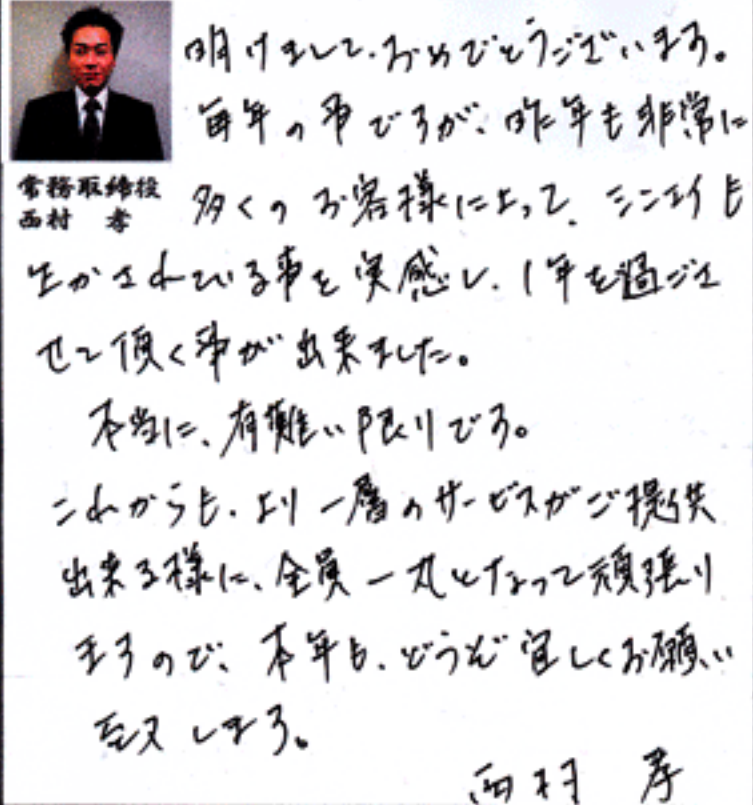 明けまして、おめでとうございます。
毎年の事ですが、昨年も非常に
常務取締役
西村 孝
多くのお客様によって、シンエイも
生かされている事を実感し、1年を過ごさ
せて頂く事が出来ました。
本当に、有難い限りです。
これからも、より一層のサービスがご提供
出来る様に、全員一丸となって頑張り
ますので、本年も、どうぞ宜しくお願い
致します。
西村 孝